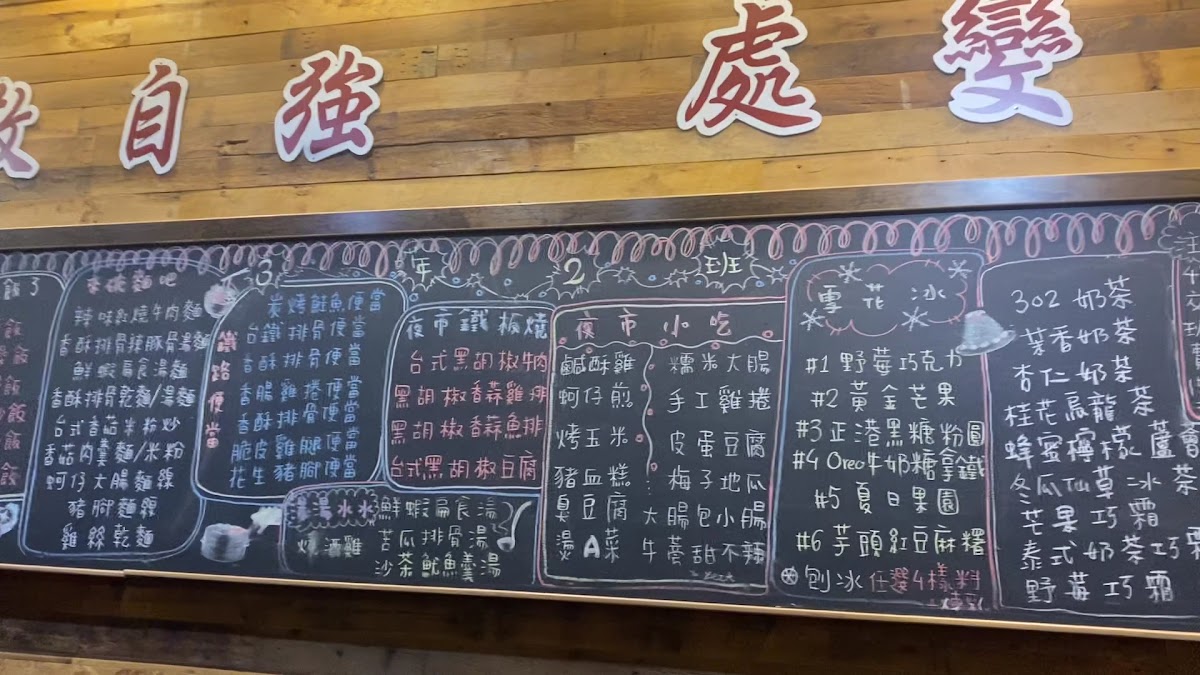 自強 處變
3 年 2 班
飯
飯
飯
飯
飯
飯
來碗麵吧
辣味紅燒牛肉麵
香酥排骨辣豚骨湯麵
鮮蝦扁食湯麵
香酥排骨乾麵/湯麵
台式香菇米粉炒
香菇肉羹麵/米粉
蚵仔大腸麵線
豬腳麵線
雞絲乾麵
鐵路便當
炭烤鮭魚便當
台鐵排骨便當
香酥排骨便當
香腸雞捲便當
香酥排骨便當
脆皮雞腿便當
花生豬腳便當
湯湯水水
燒酒雞
鮮蝦扁食湯
苦瓜排骨湯
沙茶魷魚羹湯
夜市鐵板燒
台式黑胡椒牛肉
黑胡椒香蒜雞排
黑胡椒香蒜魚排
台式黑胡椒豆腐
夜市小吃
鹹酥雞
蚵仔煎
烤玉米
豬血糕
臭豆腐
燙A菜
糯米大腸
手工雞捲
皮蛋豆腐
梅子地瓜
大腸包小腸
牛蒡甜不辣
雪花冰
#1 野莓巧克力
#2 黃金芒果
#3 正港黑糖粉圓
#4 Oreo牛奶糖拿鐵
#5 夏日果園
#6 芋頭紅豆麻糬
刨冰任選4樣料
302 奶茶
茉香奶茶
杏仁奶茶
桂花烏龍茶
蜂蜜檸檬蘆薈
冬瓜仙草冰茶
芒果巧霜
泰式奶茶巧霜
野莓巧霜